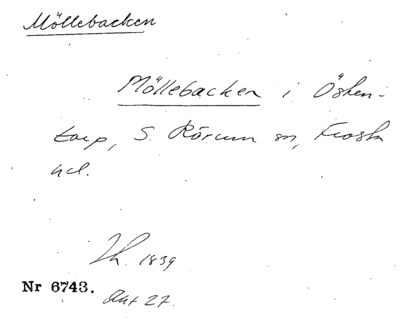 Möllebacken
Möllebacken i Östen-
tarp, S. Rörum sn, Frosta
hd.
1839
Nr 6743.
Akt 27.